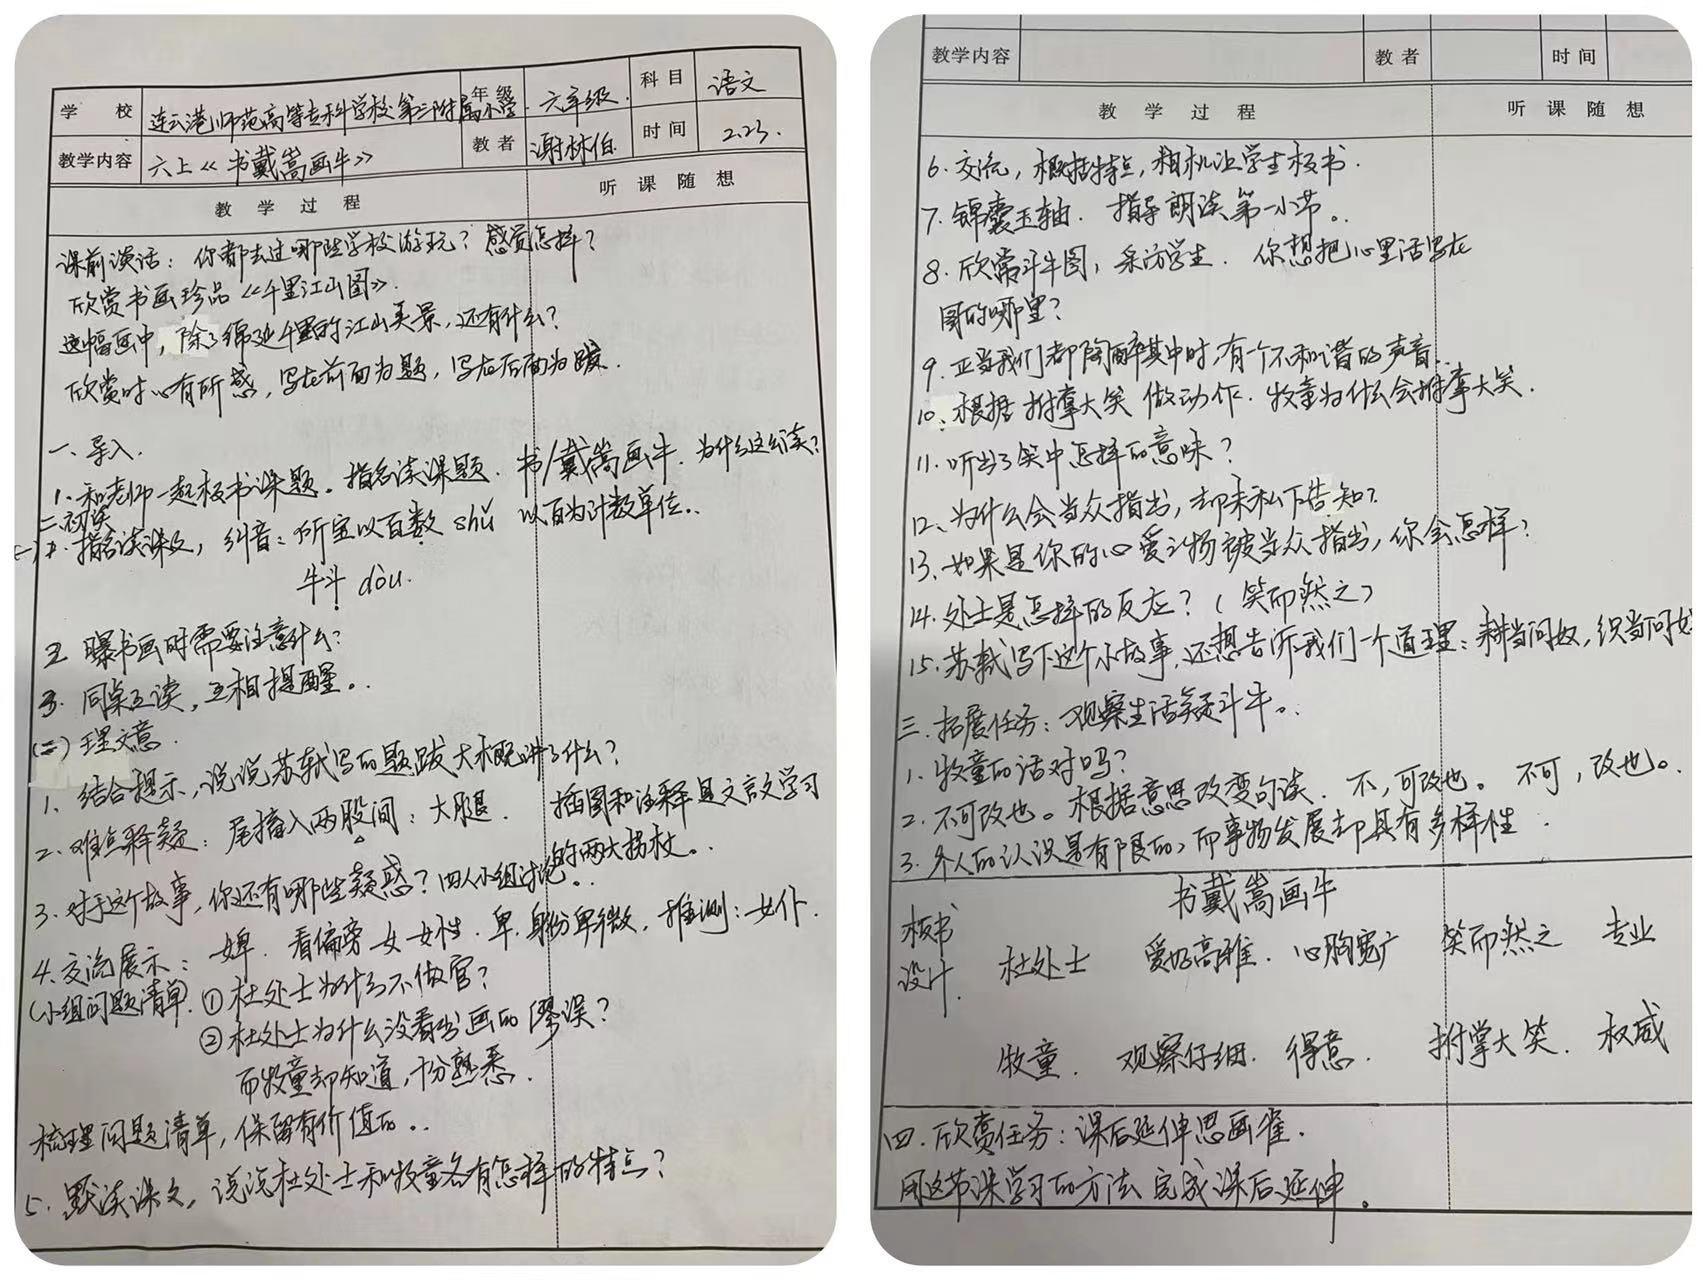 学 校 连云港师范高等专科学校第三附属小学 年级 六年级. 科目 语文
教学内容 六上《书戴嵩画牛》 教者 谢林伯 时间 2.23.
教 学 过 程 听 课 随 想
课前谈话：你都去过哪些学校游玩？感觉怎样？
欣赏书画珍品《千里江山图》.
这幅画中，除了绵延千里的江山美景，还有什么？
欣赏时心有所感，写在前面为题，写在后面为跋.
一、导入.
1、和老师一起板书课题。指名读课题. 书/戴嵩画牛. 为什么这么读？
二、初读
(一) 1. 指名读课文，纠音：所宝以百数 shǔ 以百为计数单位..
牛斗 dòu.
2 曝书画时需要注意什么？
3. 同桌互读，互相提醒..
(二) 理文意.
1、结合提示，说说苏轼写的题跋大概讲了什么？
2、难点释疑：尾搐入两股间：大腿. 插图和注释是文言文学习
的两大拐杖..
3、对于这个故事，你还有哪些疑惑？四人小组讨论..
4.交流展示：婢. 看偏旁 女 女性. 卑. 身份卑微. 推测：女仆.
(小组问题清单) ①杜处士为什么不做官？
②杜处士为什么没看出画的谬误？
而牧童却知道，十分熟悉.
梳理问题清单，保留有价值的..
5. 默读课文，说说杜处士和牧童各有怎样的特点？
教学内容 教者 时间
教 学 过 程 听 课 随 想
6. 交流，概括特点，相机让学生板书.
7. 锦囊玉轴. 指导朗读第一小节..
8. 欣赏斗牛图，采访学生. 你想把心里话写在
图的哪里？
9. 正当我们都陶醉其中时，有一个不和谐的声音..
10. 根据拊掌大笑 做动作. 牧童为什么会拊掌大笑.
11. 听出了笑中怎样的意味？
12、为什么会当众指出，却未私下告知？
13、如果是你的心爱之物被当众指出，你会怎样？
14. 处士是怎样的反应？（笑而然之）
15. 苏轼写下这个小故事，还想告诉我们一个道理：耕当问奴，织当问婢
三. 拓展任务：观察生活疑斗牛..
1. 牧童的话对吗？
2. 不可改也。根据意思改变句读. 不，可改也。 不可，改也。
3. 个人的认识是有限的，而事物发展却具有多样性.
板书设计. 书戴嵩画牛
杜处士 爱好高雅. 心胸宽广 笑而然之 专业
牧童. 观察仔细. 得意. 拊掌大笑. 权威
四. 欣赏任务：课后延伸思画雀.
用这节课学习的方法 完成课后延伸。